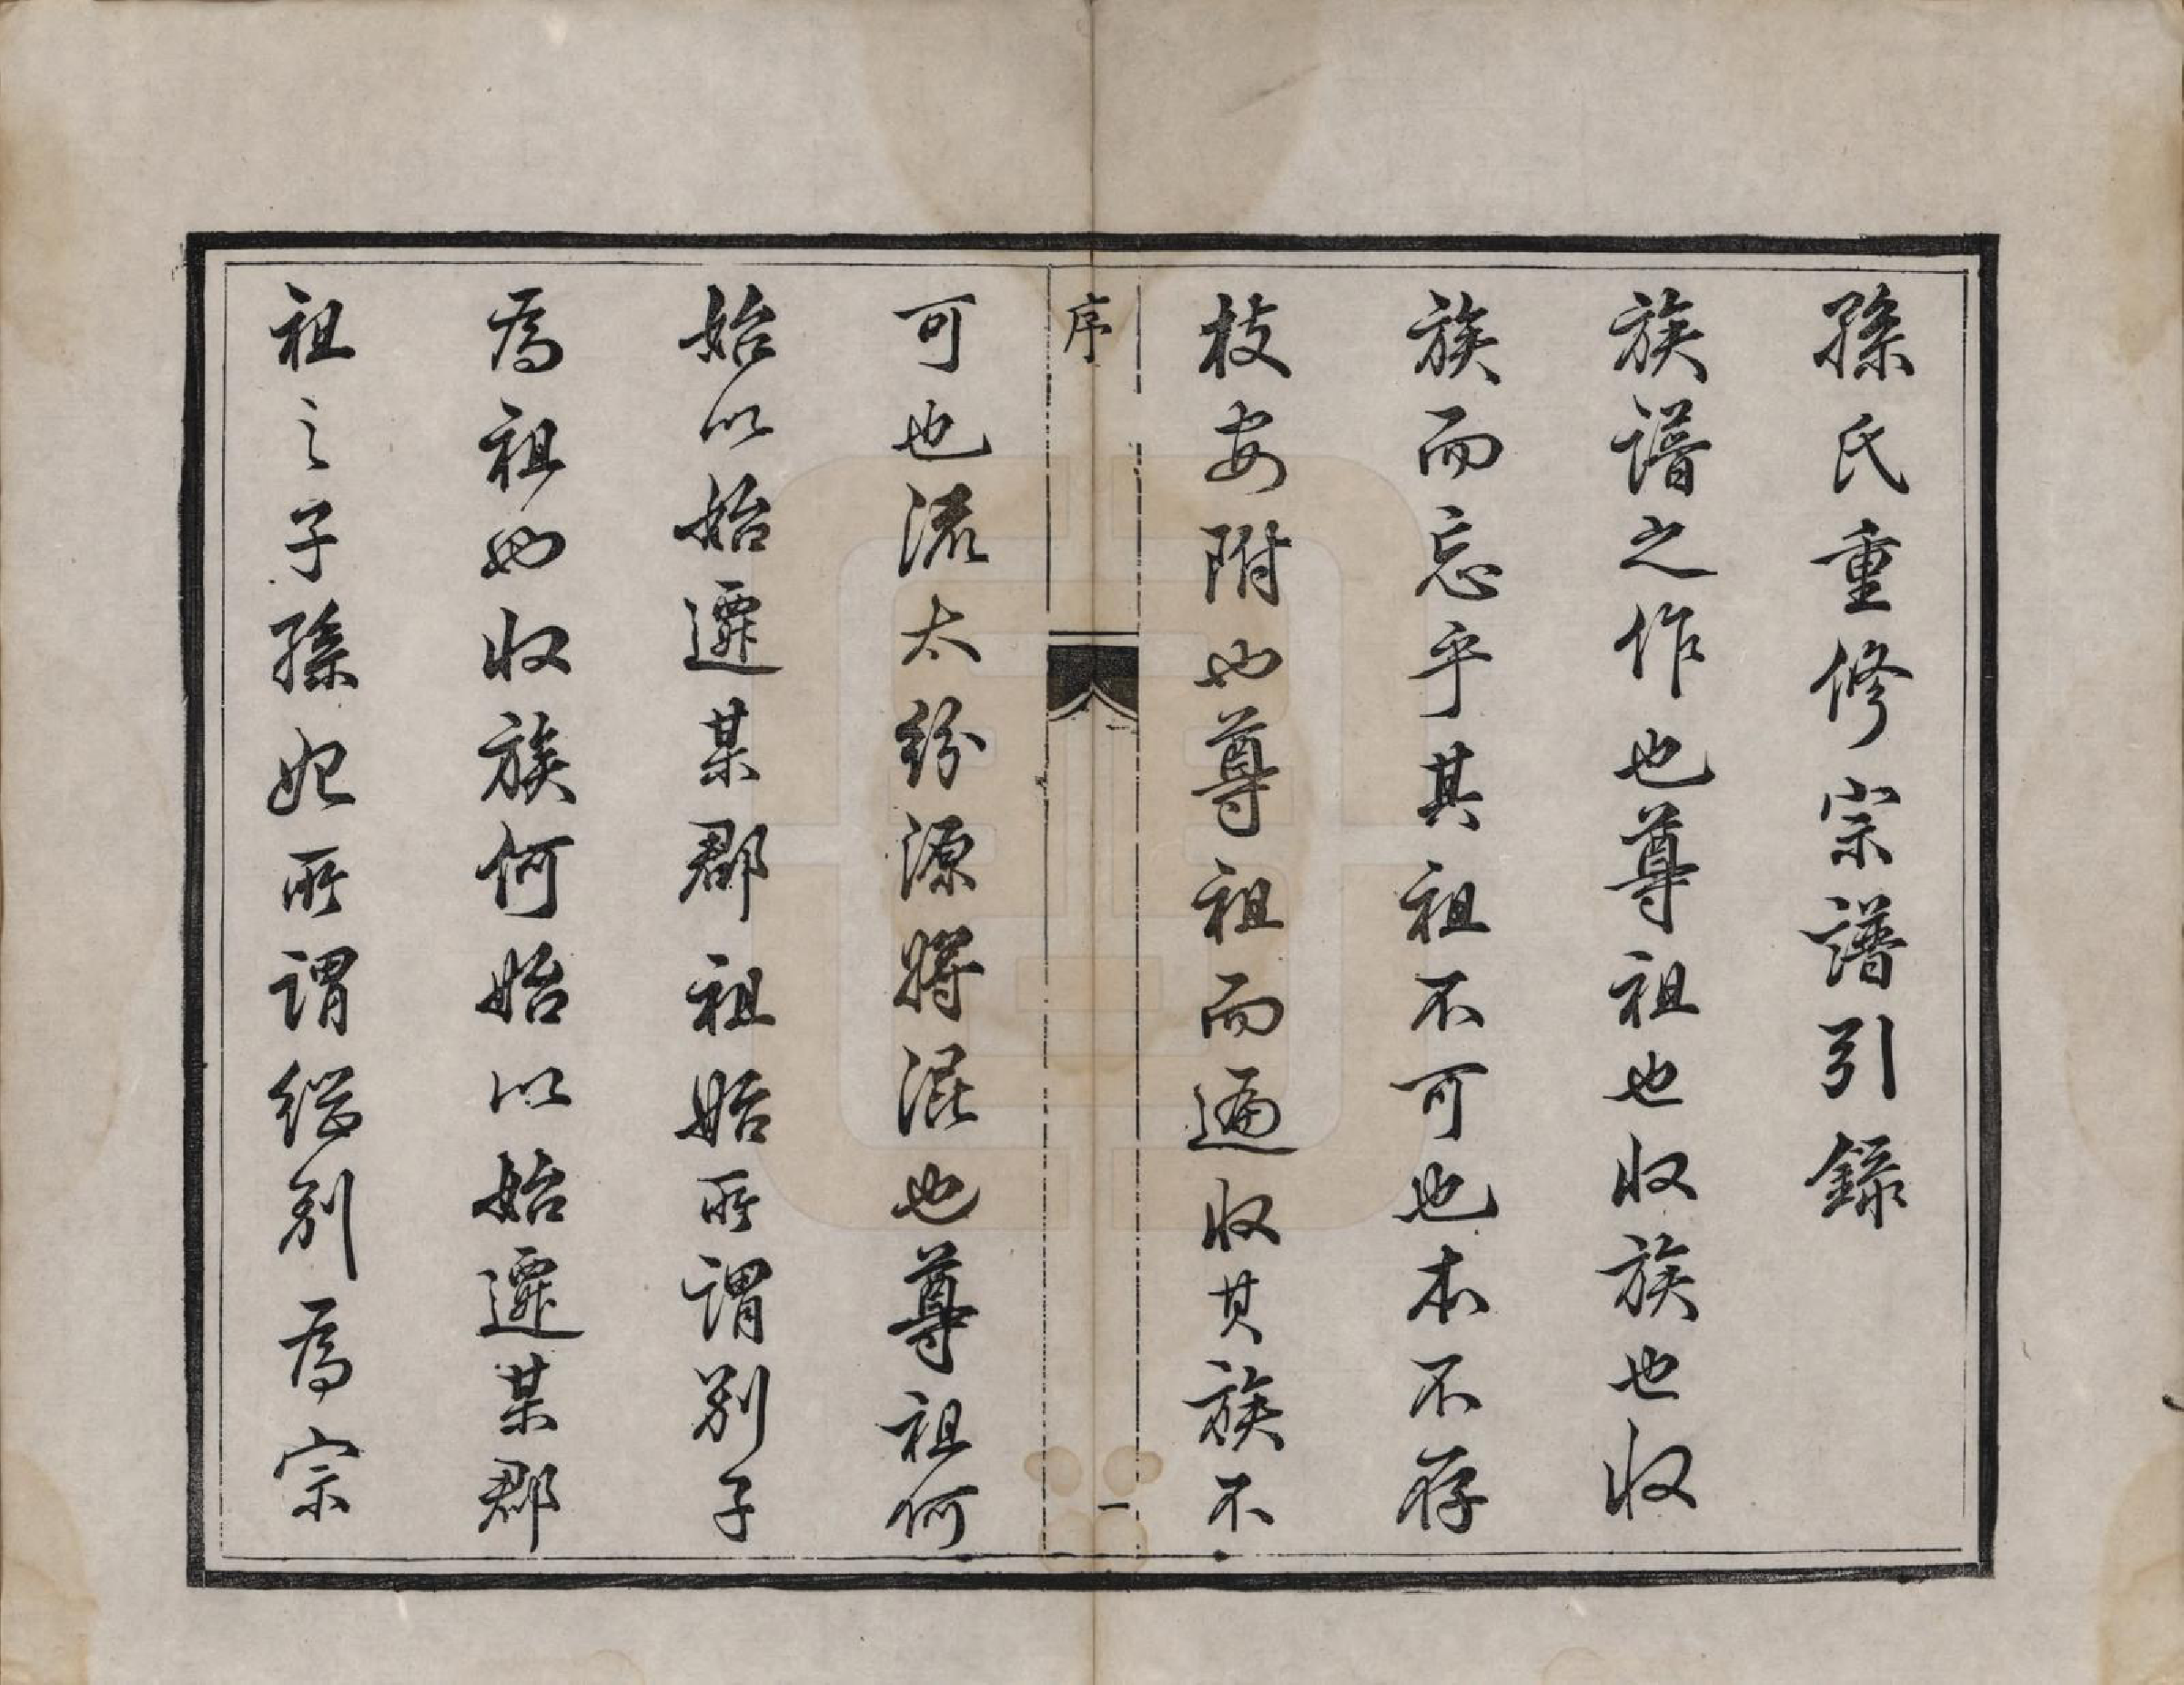 孫氏重修宗譜引錄
族譜之作也尊祖也收族也收
族而忘乎其祖不可也本不存
枝安附也尊祖而遍收其族不
序
一
可也流太紛源將混也尊祖何
始以始遷某郡祖始所謂別子
為祖也收族何始以始遷某郡
祖之子孫始所謂繼別為宗